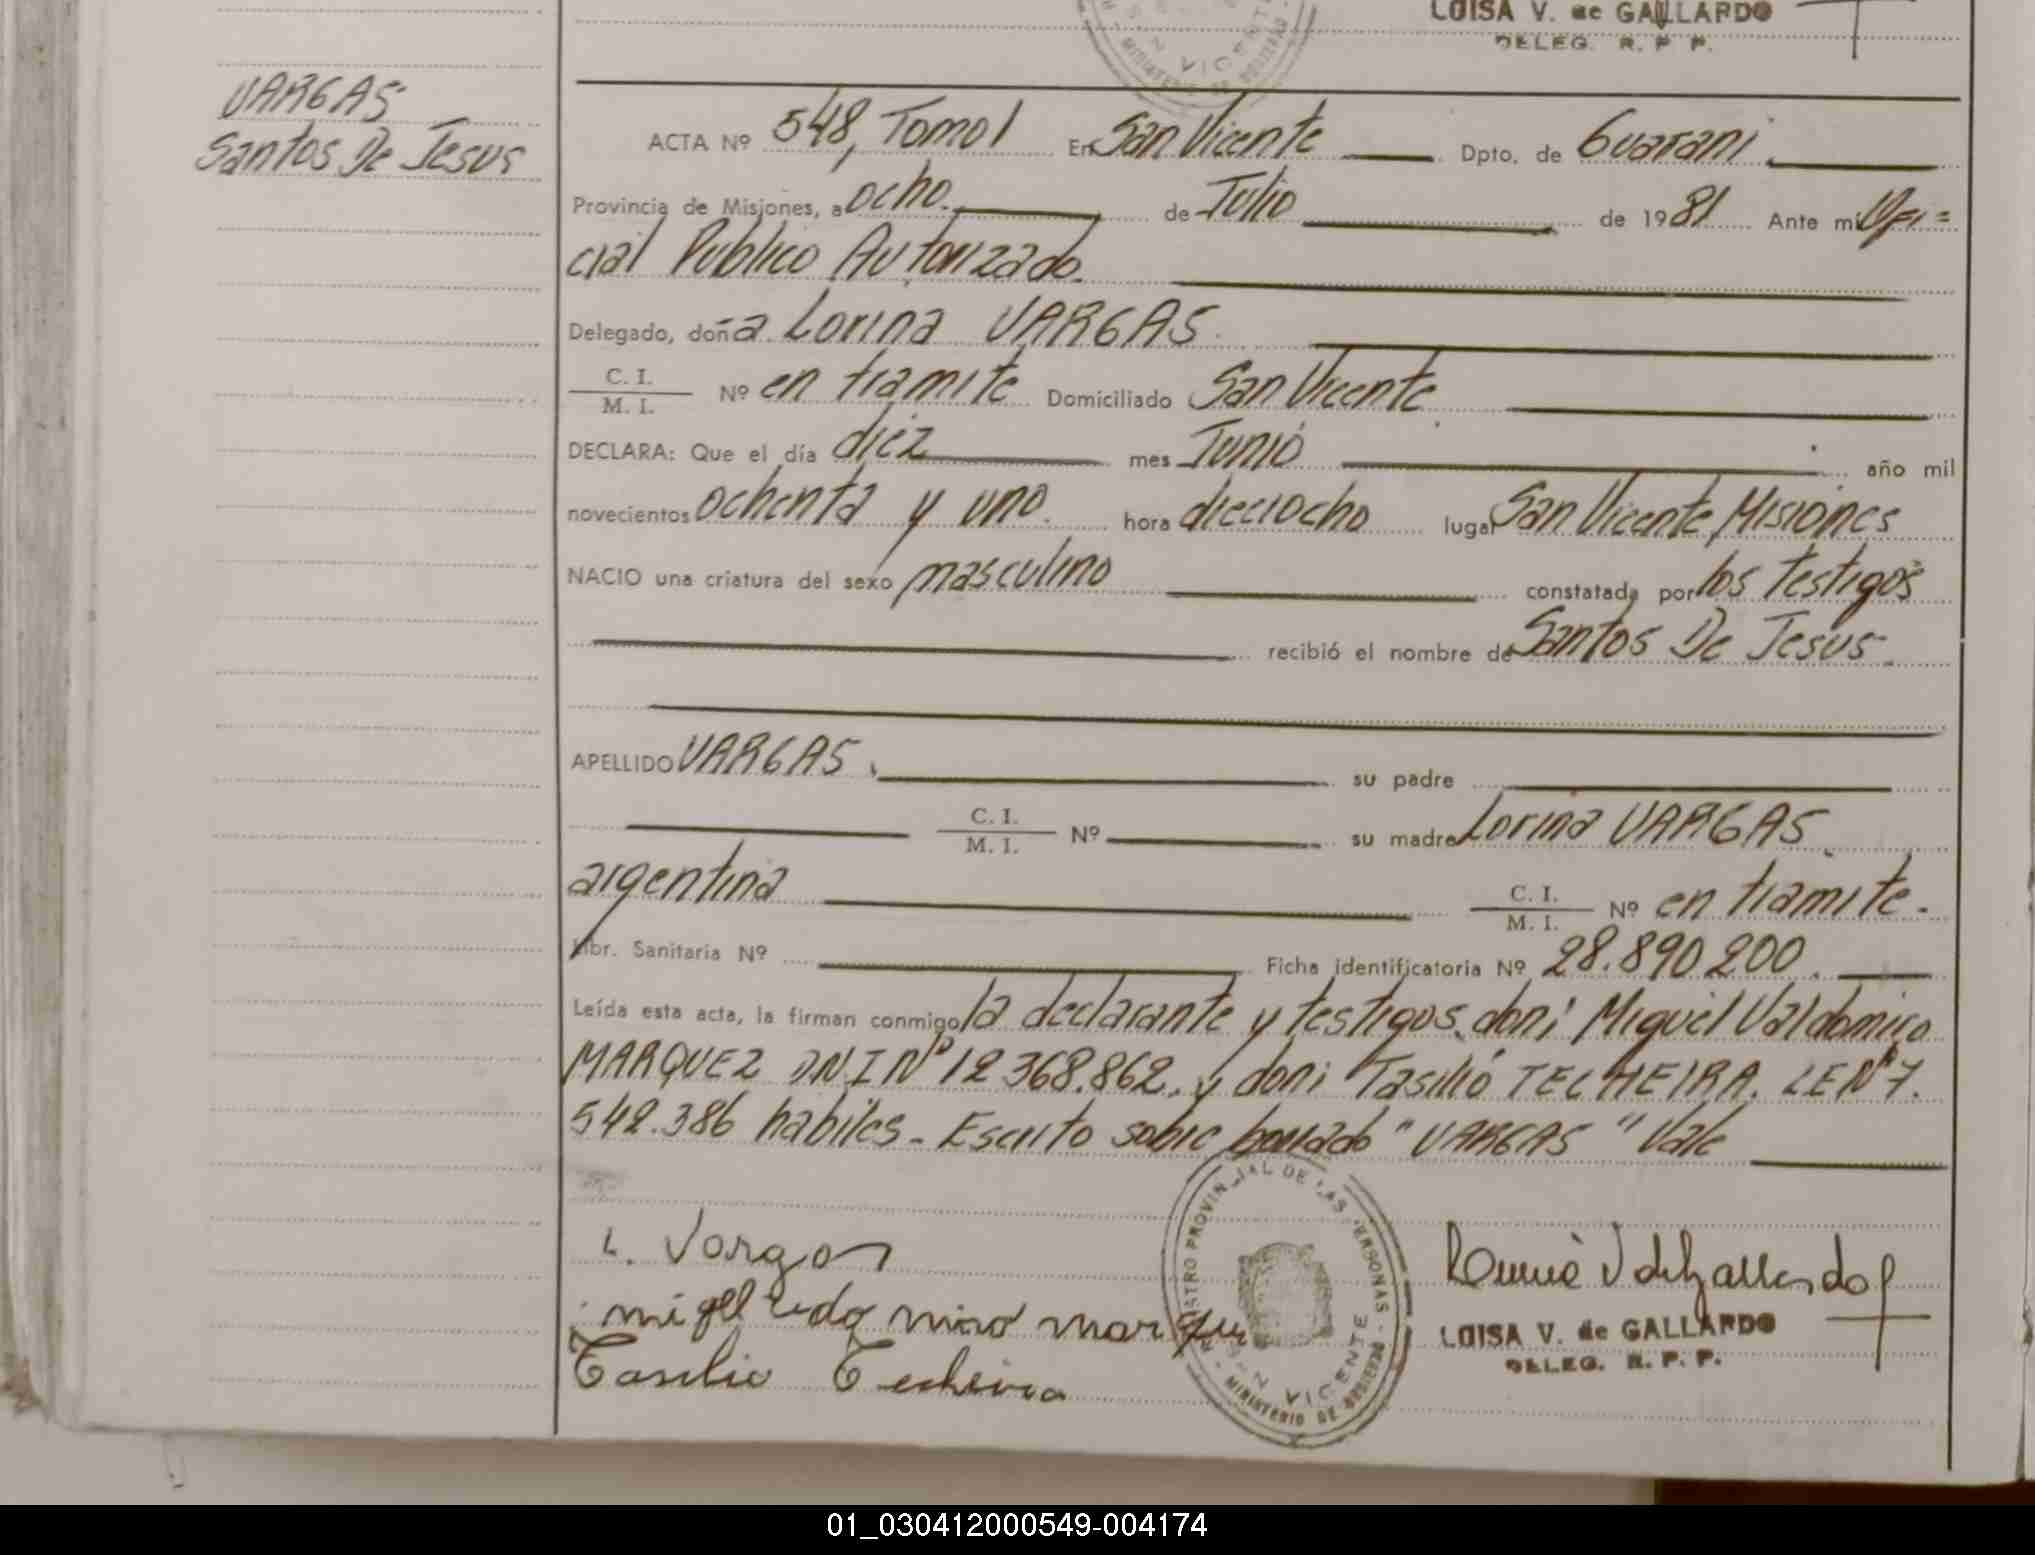 LUISA V. de GALLARDO
DELEG. R. P. P.
VARGAS
Santos De Jesus
ACTA Nº 548, Tomo I En San Vicente Dpto. de Guarani.
Provincia de Misiones, a ocho. de Julio de 1981 Ante mi Ofi=
cial Publico Autorizado.
Delegado, doña Lorina VARGAS.
C. I.
M. I. Nº en tramite Domiciliado San Vicente
DECLARA: Que el día diez mes Junio año mil
novecientos ochenta y uno. hora dieciocho lugar San Vicente, Misiones
NACIO una criatura del sexo masculino constatada por los testigos
recibió el nombre de Santos De Jesus.
APELLIDO VARGAS. su padre
C. I.
M. I. Nº su madre Lorina VARGAS.
argentina C. I.
M. I. Nº en tramite.
Libr. Sanitaria Nº Ficha identificatoria Nº 28.890.200.
Leída esta acta, la firman conmigo la declarante y testigos, don: Miguel Valdomiro
MARQUEZ DNI Nº 12.368.862. y don: Tasilio TECHEIRA. LE Nº 7.
542.386 habiles - Escrito sobre borrado "VARGAS" Vale
L. Vargas
Tasilio Techeira
REGISTRO PROVINCIAL DE LAS PERSONAS
SAN VICENTE
MINISTERIO DE GOBIERNO
LUISA V. de GALLARDO
DELEG. R. P. P.
01_030412000549-004174